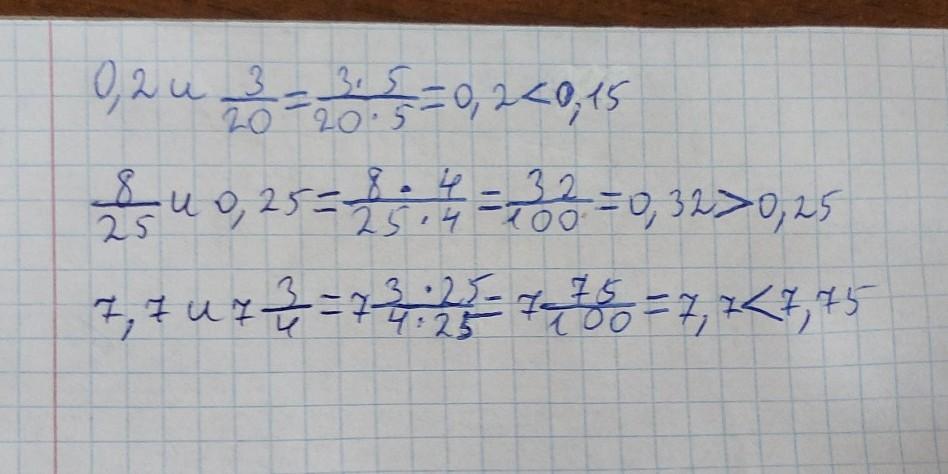 0,2 и 3/20 = 3·5/20·5 = 0,2 < 0,15
8/25 и 0,25 = 8·4/25·4 = 32/100 = 0,32 > 0,25
7,7 и 7 3/4 = 7 3·25/4·25 = 7 75/100 = 7,7 < 7,75